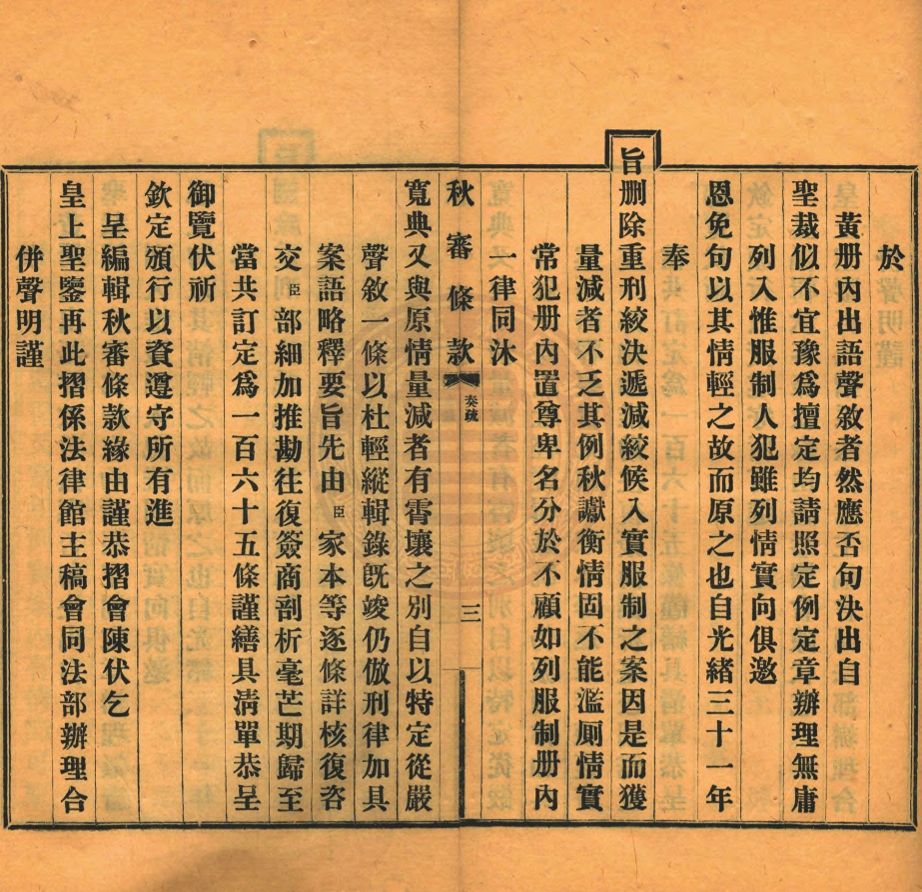 於
黃册內出語聲敘者然應否句決出自
聖裁似不宜豫爲擅定均請照定例定章辦理無庸
列入惟服制人犯雖列情實向俱邀
恩免句以其情輕之故而原之也自光緒三十一年
奉
旨刪除重刑絞決遞減絞候入實服制之案因是而獲
量減者不乏其例秋讞衡情固不能濫厠情實
常犯册內置尊卑名分於不顧如列服制册內
一律同沐
秋審條款 奏疏 三
寬典又與原情量減者有霄壤之別自以特定從嚴
聲敘一條以杜輕縱輯錄既竣仍倣刑律加具
案語略釋要旨先由臣家本等逐條詳核復咨
交臣部細加推勘往復簽商剖析毫芒期歸至
當共訂定爲一百六十五條謹繕具清單恭呈
御覽伏祈
欽定頒行以資遵守所有進
呈編輯秋審條款緣由謹恭摺會陳伏乞
皇上聖鑒再此摺係法律館主稿會同法部辦理合
併聲明謹